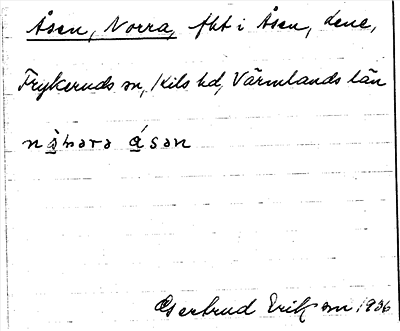 Åsen, Norra, fbt i Åsen, dene,
Frykeruds sn, Kils hd, Värmlands län
åsən
Gertrud Erikson 1936